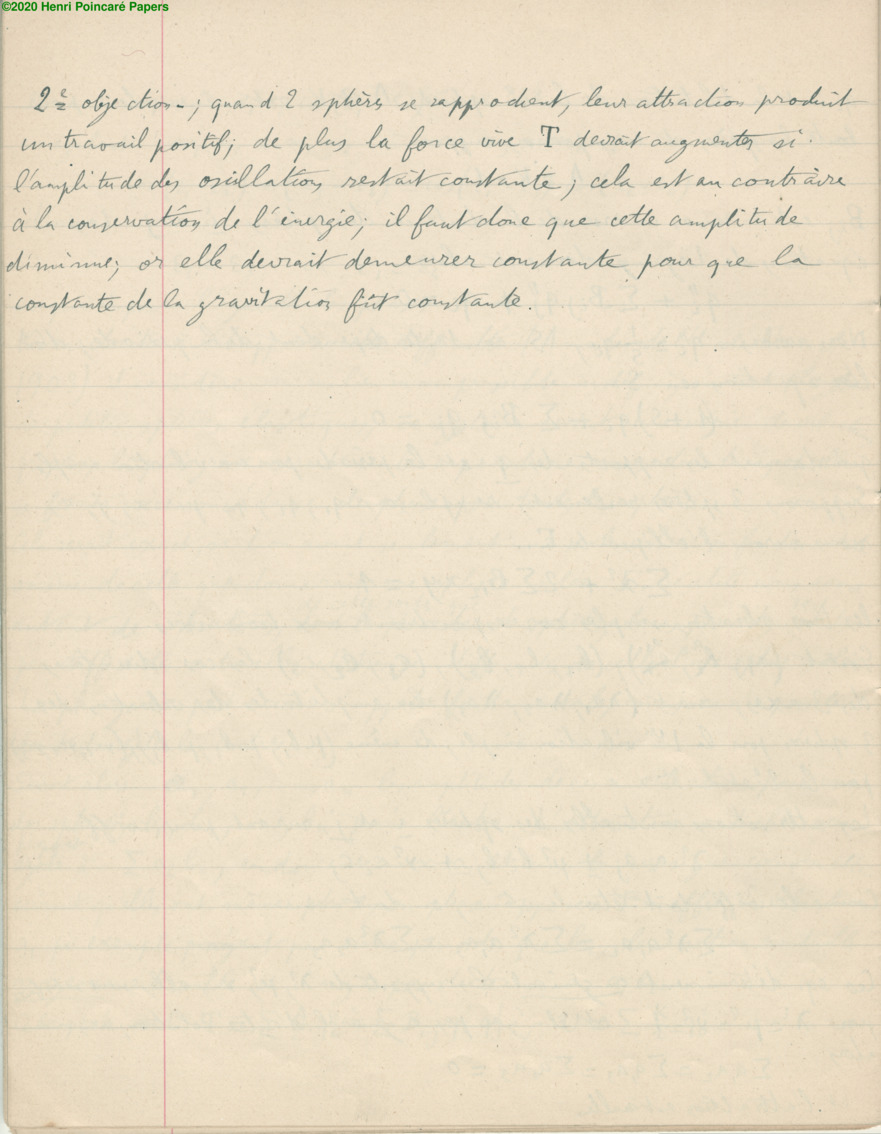 ©2020 Henri Poincaré Papers
2e objection.; quand 2 sphères se rapprochent, leur attraction produit
un travail positif; de plus la force vive T devrait augmenter si
l'amplitude des oscillations restait constante; cela est au contraire
à la conservation de l'énergie; il faut donc que cette amplitude
diminue; or elle devrait demeurer constante pour que la
constante de la gravitation fût constante.